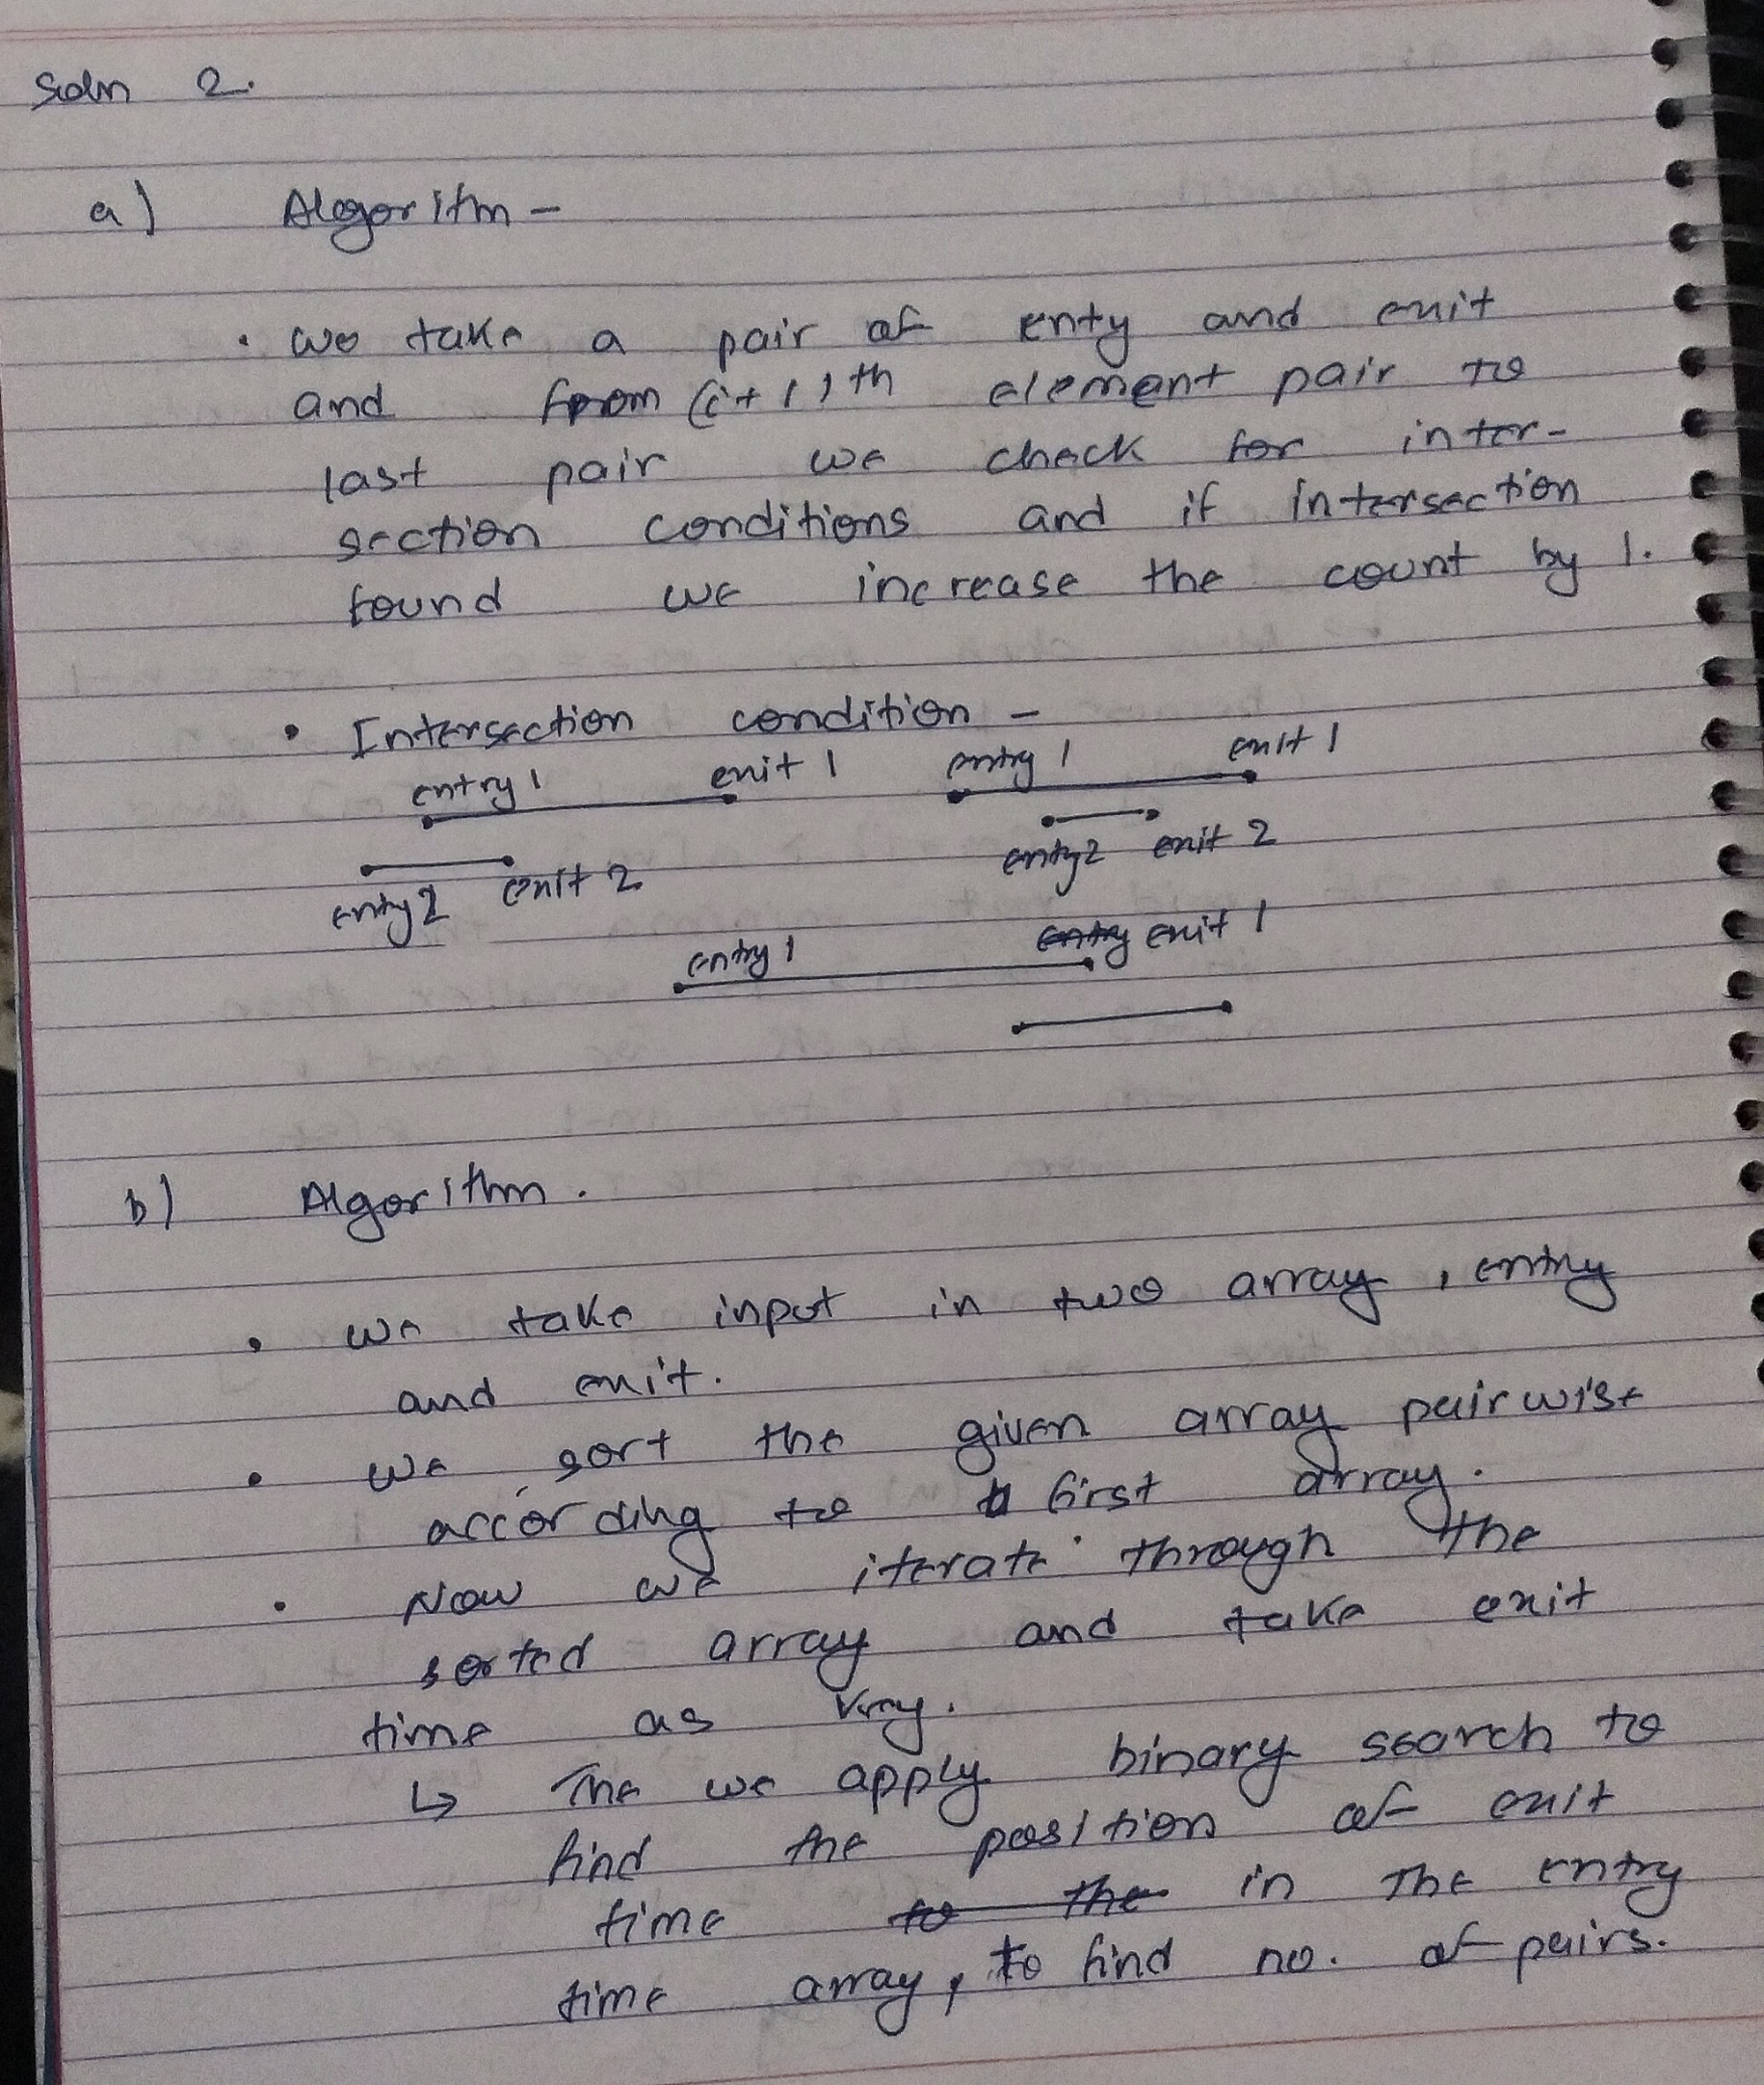 Soln 2.
a) Algorithm -
• we take a pair of enty and exit
and from (i+1)th element pair to
last pair we check for inter-
section conditions and if intersection
found we increase the count by 1.
• Intersection condition -
entry 1 exit 1 entry 1 exit 1
entry 2 exit 2 entry 2 exit 2
entry 1 entry exit 1
b) Algorithm.
• we take input in two array, entry
and exit.
• we sort the given array pairwise
according to first array.
• Now we iterate through the
sorted array and take exit
time as key.
↳ The we apply binary search to
find the position of exit
time to the in the entry
time array, to find no. of pairs.